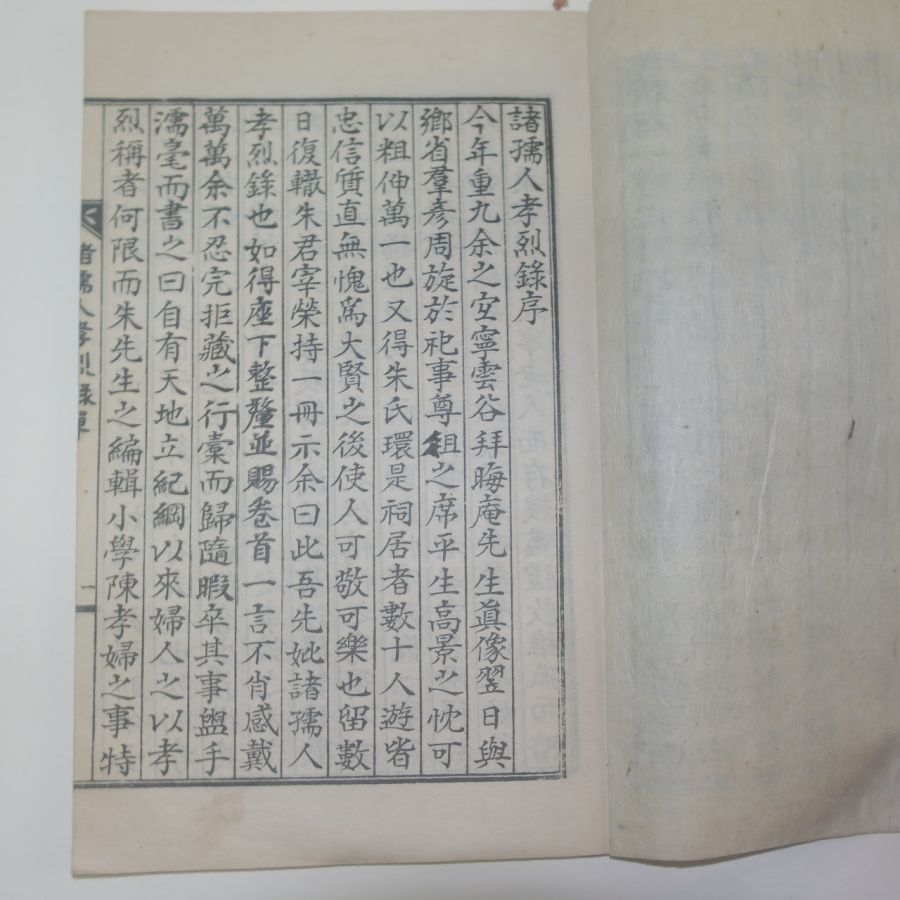 諸孺人孝烈錄序
今年重九余之安寧雲谷拜晦庵先生眞像翌日與
鄉省羣彦周旋於祀事尊俎之席平生高景之忱可
以粗伸萬一也又得朱氏環是祠居者數十人遊皆
忠信質直無愧爲大賢之後使人可敬可樂也留數
日復轍朱君宰榮持一冊示余曰此吾先妣諸孺人
孝烈錄也如得座下整釐並賜卷首一言不肖感戴
萬萬余不忍完拒藏之行橐而歸隨暇卒其事盥手
濡毫而書之曰自有天地立紀綱以來婦人之以孝
烈稱者何限而朱先生之編輯小學陳孝婦之事特
諸孺人孝烈錄單
一